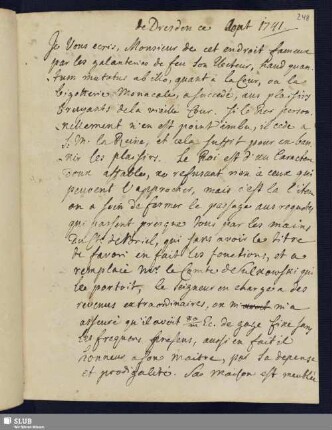 249
de Dresden ce Aout 1741
Je Vous ecris, Monsieur de cet endroit fameux
par les galanteries de feu son Electeur, haud quan
tum mutatus ab illo, quant à la Cour, ou la
bigotterie Monacale, a succedé, aux plaisirs
bruyants de la vieille Cour. Si le Roi person
nellement n'en est point imbu, il cede a
la Reine, et cela suffit pour en ban
nir les plaisirs. Le Roi est d'un Caractere
doux affable, ne refusant rien à ceux qui
peuvent l'approcher, mais c'est le
on a soin de fermer le passage aux
qui passent presque tous par les mains
du qui sans avoir le titre
de favori en fait les fonctions, et a
remplacé le Comte de Sulkowski qui
le portoit, le Seigneur en chargera des
revenus extraordinaires, on m'a
asseuré qu'il avoit Ec. de gage fixe sans
les frequens presens, aussi en fait il
honneur a son maitre, par sa depense
et prodigalité. Sa maison est meublée
SLUB